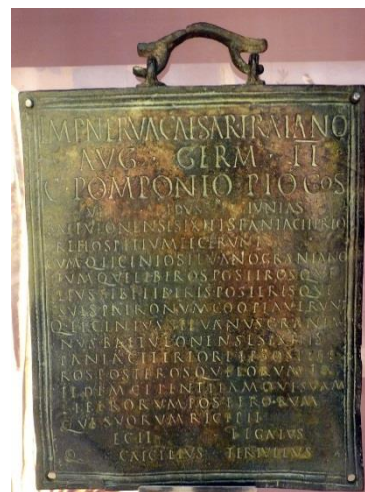 IMP NERVA CAESARE TRAIANO
AVG GERM II
C POMPONIO PIO COS
IDVS IVNIAS
BAETVLONENSES EX HISPANIA CITERIO
RE HOSPITIVM FECERVNT
CVM Q LICINIO SILVANO GRANIANO
CVMQVE LIBEROS POSTEROSQVE
PATRONVM COOPTAVERVN
Q LICINIVS SILVANVS GRANIA
NVS BAETVLONENSES EX HIS
PANIA CITERIORE
ROS POSTEROSQVE EORVM IN
FIDEM CLIENTELAMQVE SVAM
LIBERORVM POSTERORVM
QVE SVORVM RECEPIT
EGIT LEGATVS
Q CAECILIVS TERTVLLVS